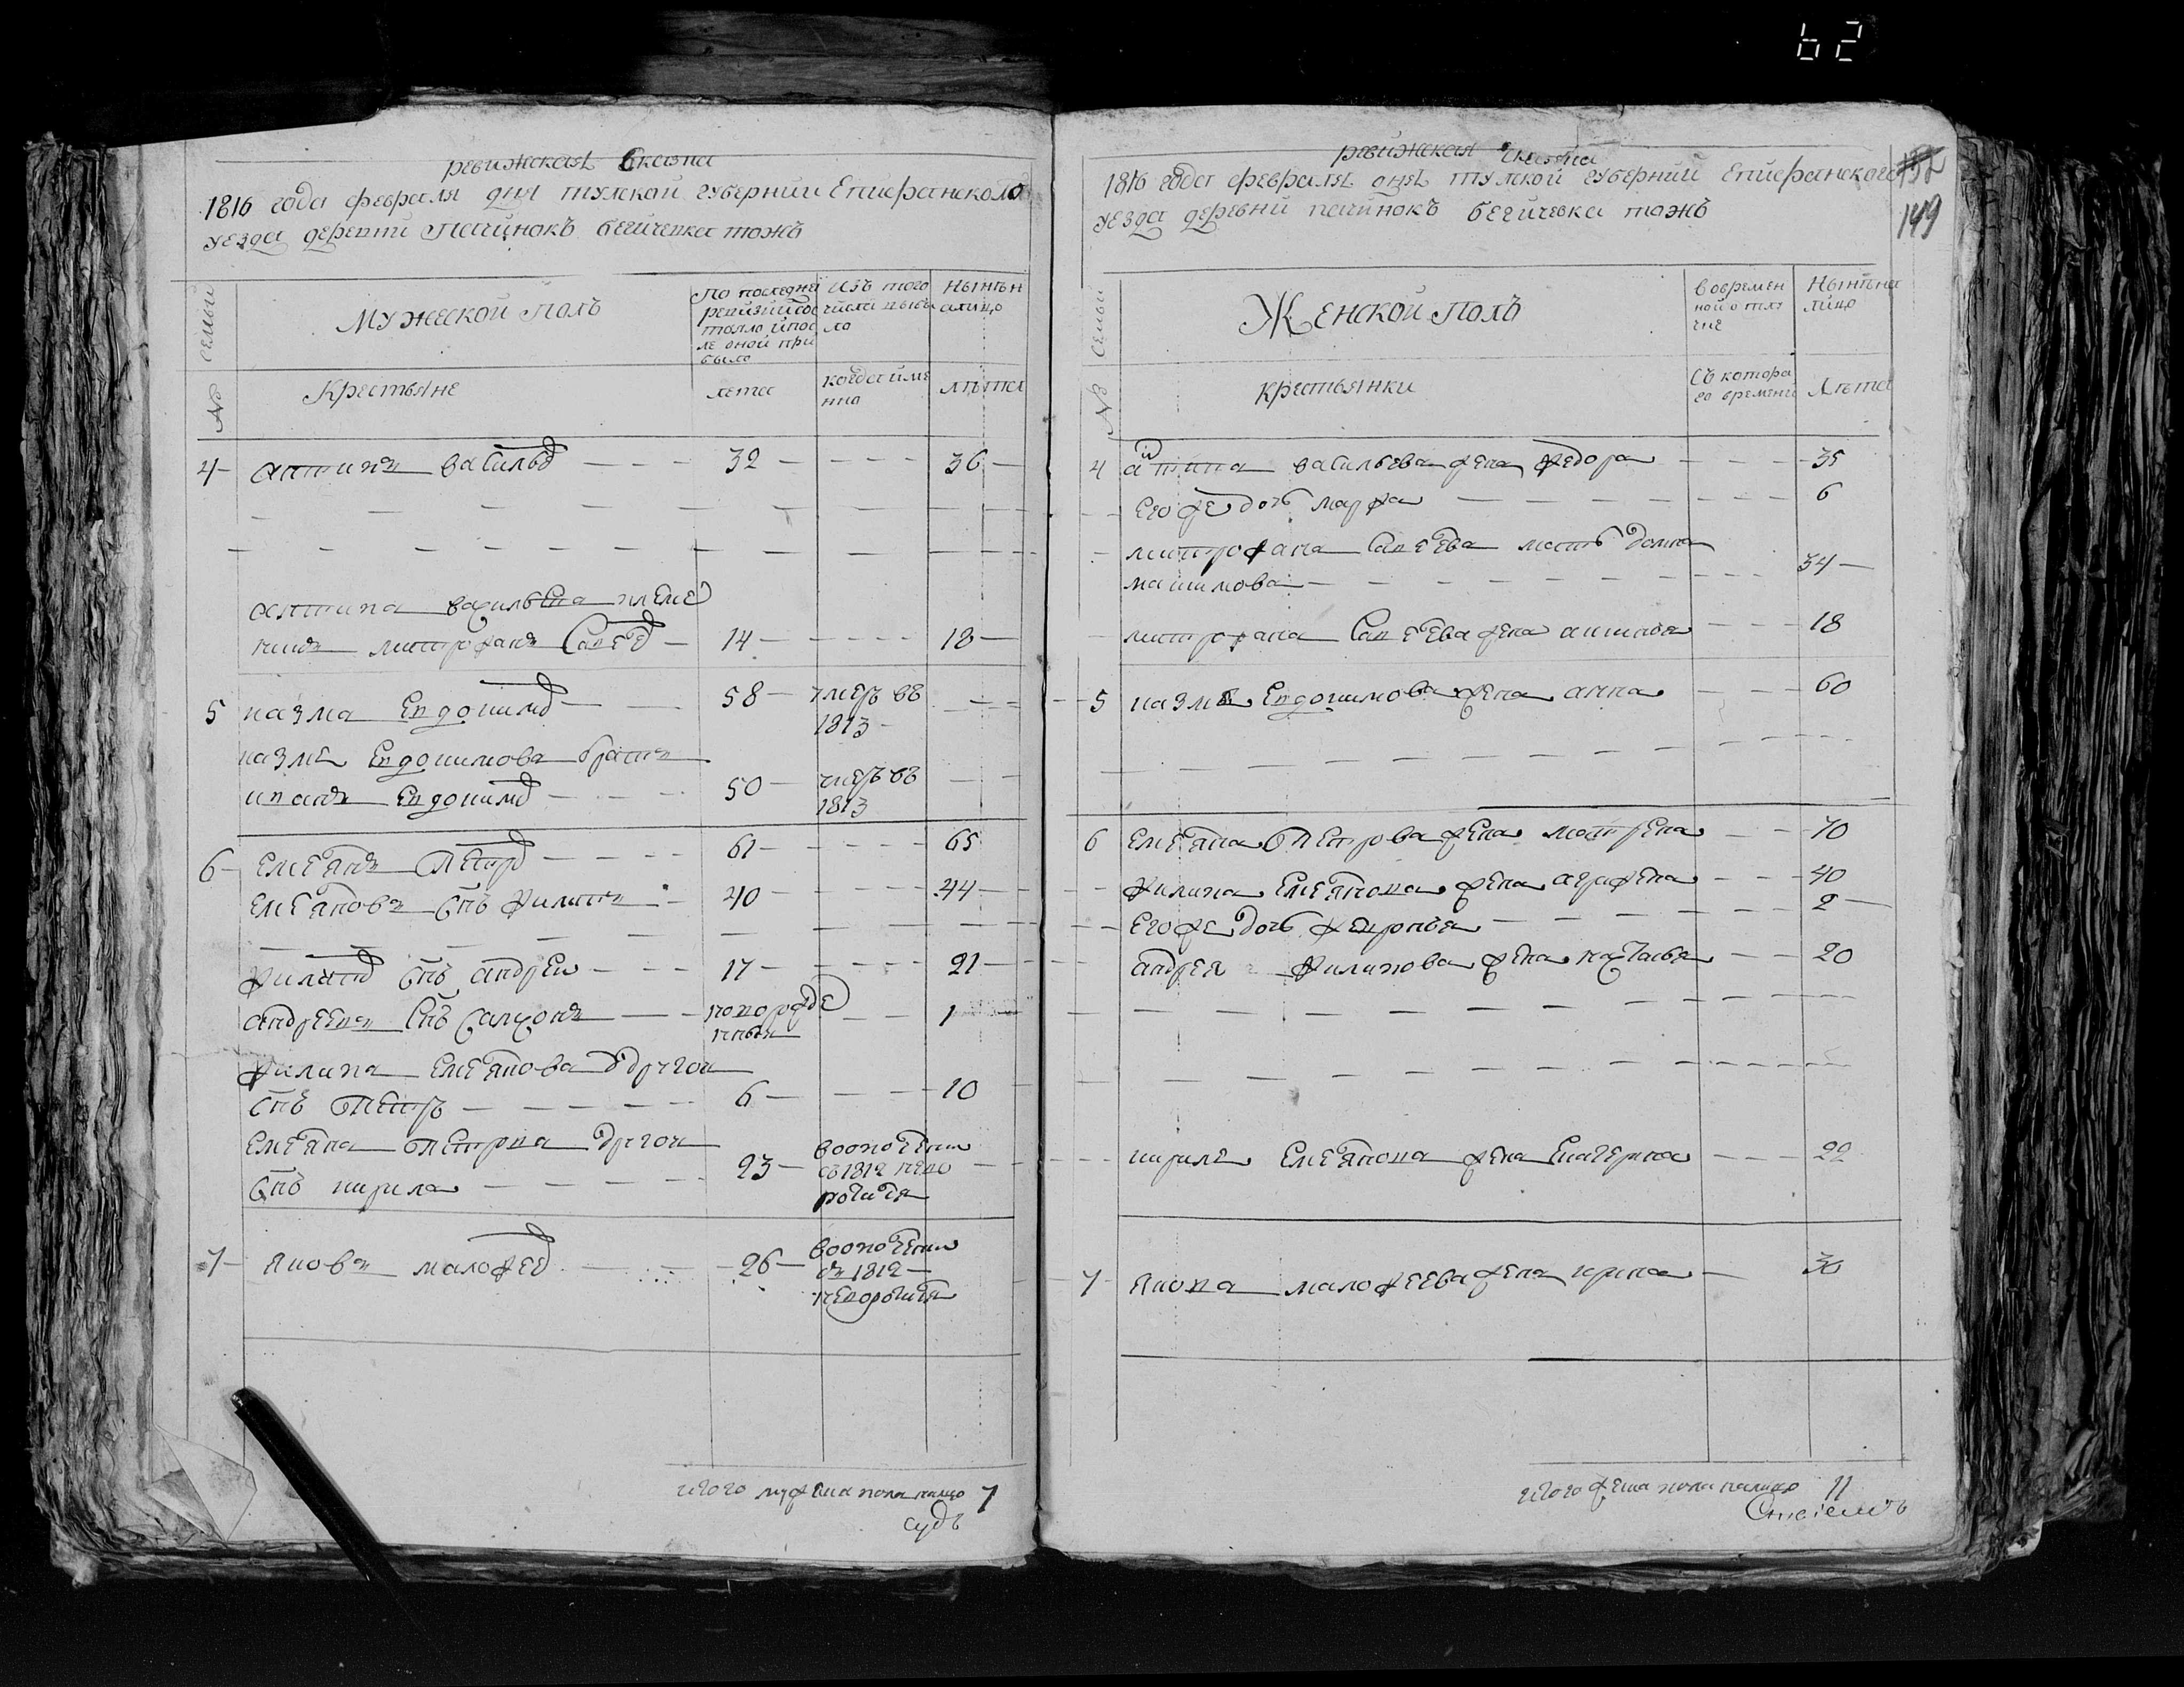 62
ревижская Сказка
1816 года февраля дня тулской губернии Епифанского
уезда деревни Пачинокъ бегичевка тожъ
№ семьи
Мужеской полъ
По последней ревизии состояло и после оной прибыло
Изъ того числа выбыло
Нынѣ на лицо
Крестьяне
лета
когда имянно
лѣта
4 антипъ василье 32 36
антипа васильева племе
никъ митрофанъ Савее 14 18
5 казма Евдокимо 58 умеръ въ
1813
казмы Евдокимова братъ
иванъ Евдокимо 50 умеръ въ
1813
6 Емельянъ Петро 61 65
Емельяновъ снъ филипъ 40 44
филипо снъ андрей 17 21
андреевъ снъ самсонъ новорожде
нный 1
филипа Емельянова другой
снъ Петръ 6 10
Емельяна Петрова другой
снъ кирила 23 в ополчении
съ 1812 нево
ротился
7 яковъ малофее 26 в ополчении
съ 1812
неворотился
итого мужеска пола налицо 7
судъ
ревижская сказка
1816 года февраля дня тулской губернии Епифанского
уезда деревни пачинокъ бегичевка тожъ
152
149
№ семьи
Женской полъ
во временной отлучке
Нынѣ на лицо
крестьянки
Съ которого времени
Лѣта
4 антипа васильева жена федора 35
Его же дочь марфа 6
митрофана Савеева мать домна
макимова 34
митрофана Савеева жена анисья 18
5 казмы Евдокимова жена анна 60
6 Емельяна Петрова жена матрена 70
филипа Емельянова жена аграфена 40
Его же дочь февронья 2
андрея филипова жена наталья 20
кирилы Емельянова жена Катерина 22
7 якова малофеева жена ирина 30
итого женска пола налицо 11